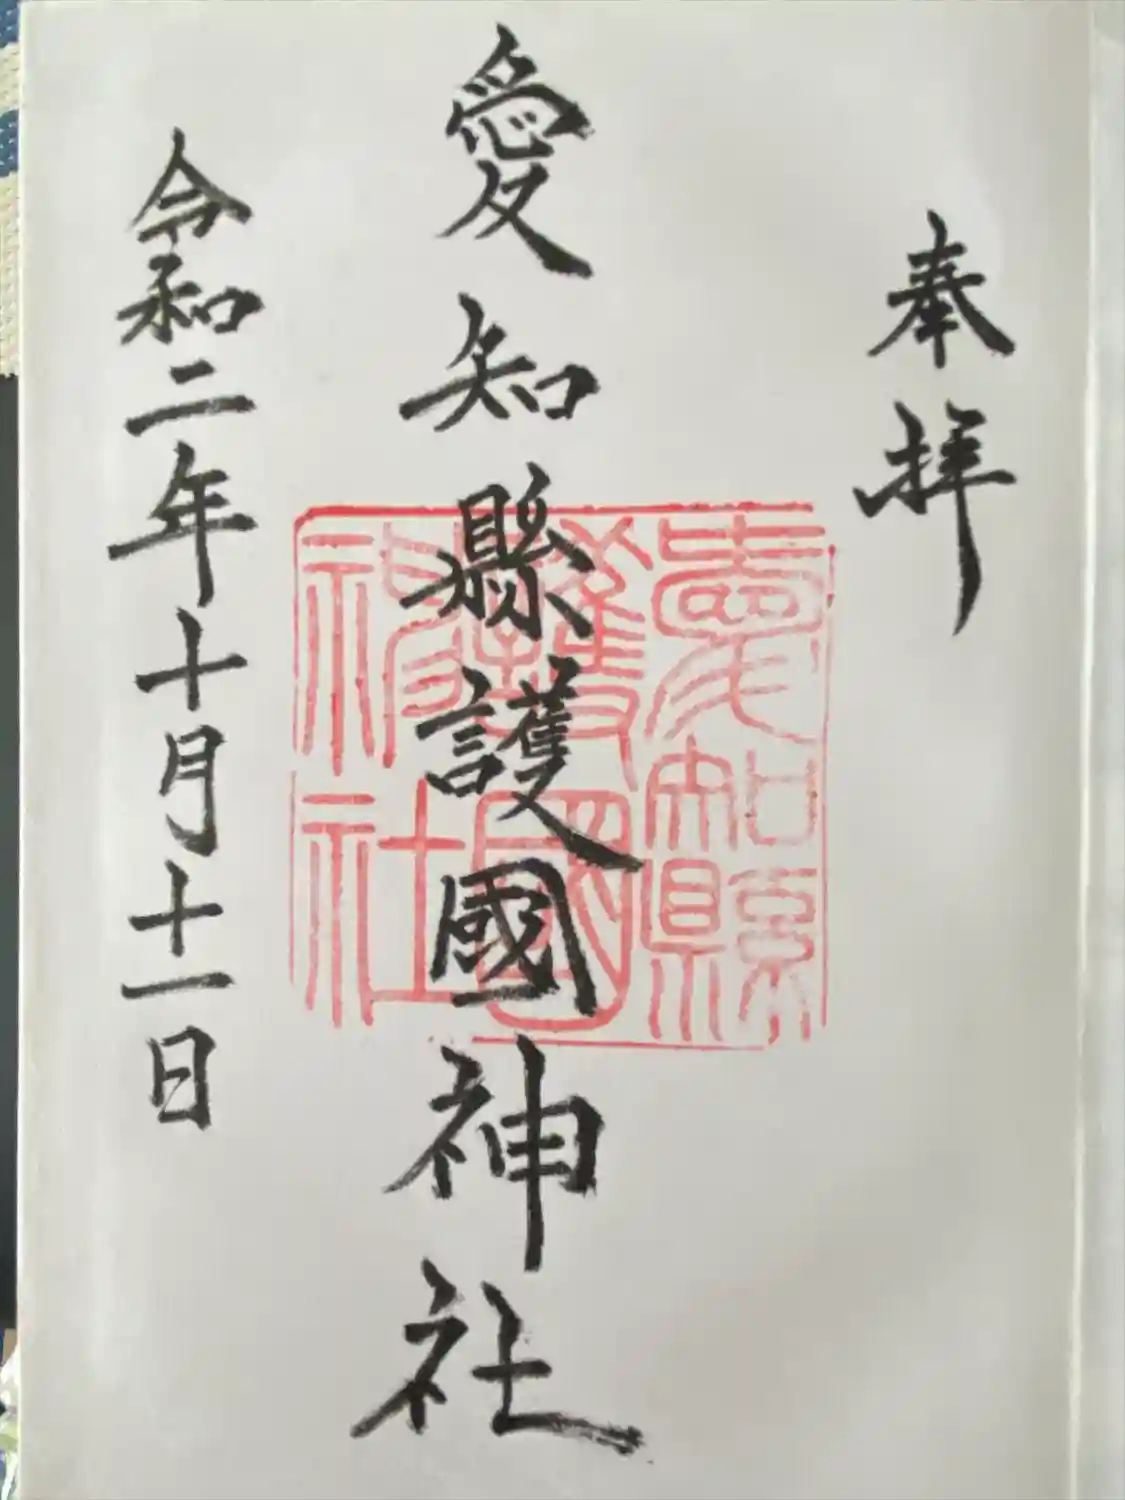 奉拝
愛知縣護國神社
愛知縣
護國
神社
令和二年十月十一日